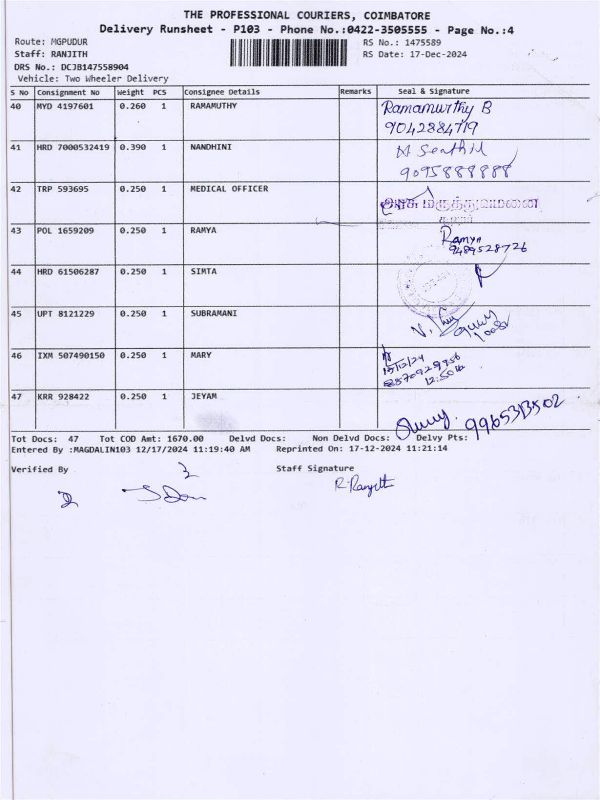 THE PROFESSIONAL COURIERS, COIMBATORE
Delivery Runsheet - P103 - Phone No.:0422-3505555 - Page No.:4
Route: MGPUDUR RS No.: 1475589
Staff: RANJITH RS Date: 17-Dec-2024
DRS No.: DCJB147558904
Vehicle: Two Wheeler Delivery
S No Consignment No Weight PCS Consignee Details Remarks Seal & Signature
40 MYD 4197601 0.260 1 RAMAMUTHY Ramamurthy B
9042884719
41 HRD 7000532419 0.390 1 NANDHINI M Senthil
9095888888
42 TRP 593695 0.250 1 MEDICAL OFFICER
அரசு மருத்துவமனை
43 POL 1659209 0.250 1 RAMYA Ramya
9489528726
44 HRD 61506287 0.250 1 SIMTA
45 UPT 8121229 0.250 1 SUBRAMANI
46 IXM 507490150 0.250 1 MARY
47 KRR 928422 0.250 1 JEYAM
9965313502
Tot Docs: 47 Tot COD Amt: 1670.00 Delvd Docs: Non Delvd Docs: Delvy Pts:
Entered By :MAGDALIN103 12/17/2024 11:19:40 AM Reprinted On: 17-12-2024 11:21:14
Verified By Staff Signature
R.Ranjith